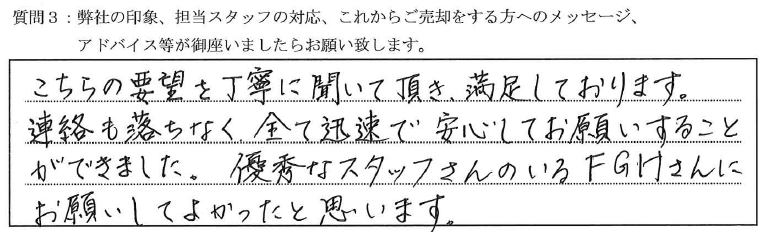 質問３：弊社の印象、担当スタッフの対応、これからご売却をする方へのメッセージ、
アドバイス等が御座いましたらお願い致します。
こちらの要望を丁寧に聞いて頂き、満足しております。
連絡も落ちなく全て迅速で安心してお願いすること
ができました。優秀なスタッフさんのいるＦＧＨさんに
お願いしてよかったと思います。